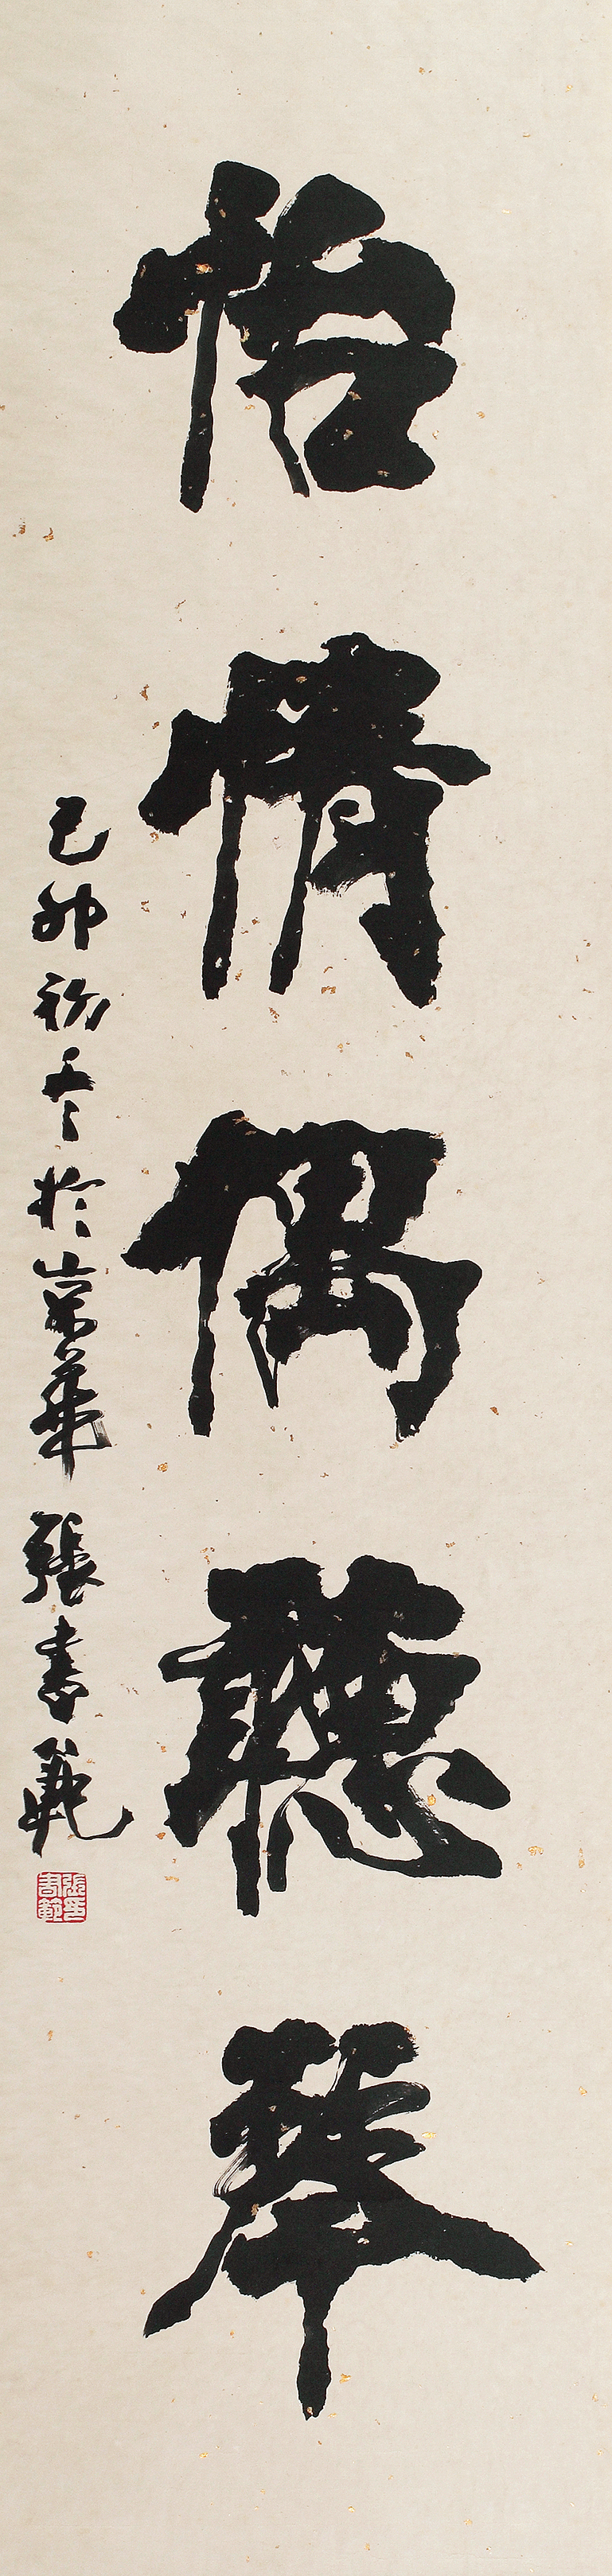 怡情偶聽琴
己卯初冬於京華 張書範
張印書範